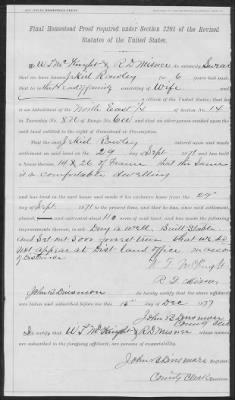 Final Homestead Proof required under Section 2291 of the Revised
Statutes of the United States.
We W F McKnight & R D Mison do solemnly Swear
that we have known Jekiel Rowley for 6 years last past;
that he is head of family consisting of Wife
and a citizen of the United States; that he is
an inhabitant of the North East ¼ of section No. 14
in Township No. 8 N of Range No. 6 W and that no other person resided upon the
said land entitled to the right of Homestead or Pre-emption.
That the said Jekiel Rowley entered upon and made
settlement on said land on the 29 day of Sept, 1871 and has built
a house thereon 14 x 26 of Frame that the Same
is a comfortable dwelling
and has lived in the said house and made it his exclusive home from the 29th
day of Sept, 1871 to the present time, and that he has, since said settlement,
plowed, and cultivated about 110 acres of said land, and has made the
improvements thereon, to wit: Dug a well, Built Stable
and Set out 5000 forest trees that we do
not appear at Dist land office in reason
of Distance
W. F. McKnight
R. D. Mison
I, John B Dinsmore do hereby certify that the above affidavit
was taken and subscribed before me this 15th day of Dec 1877
John B Dinsmore
County Clerk
We certify that W F McKnight & R D Mison whose names are
subscribed to the foregoing affidavit, are persons of respectability.
John B Dinsmore
County Clerk